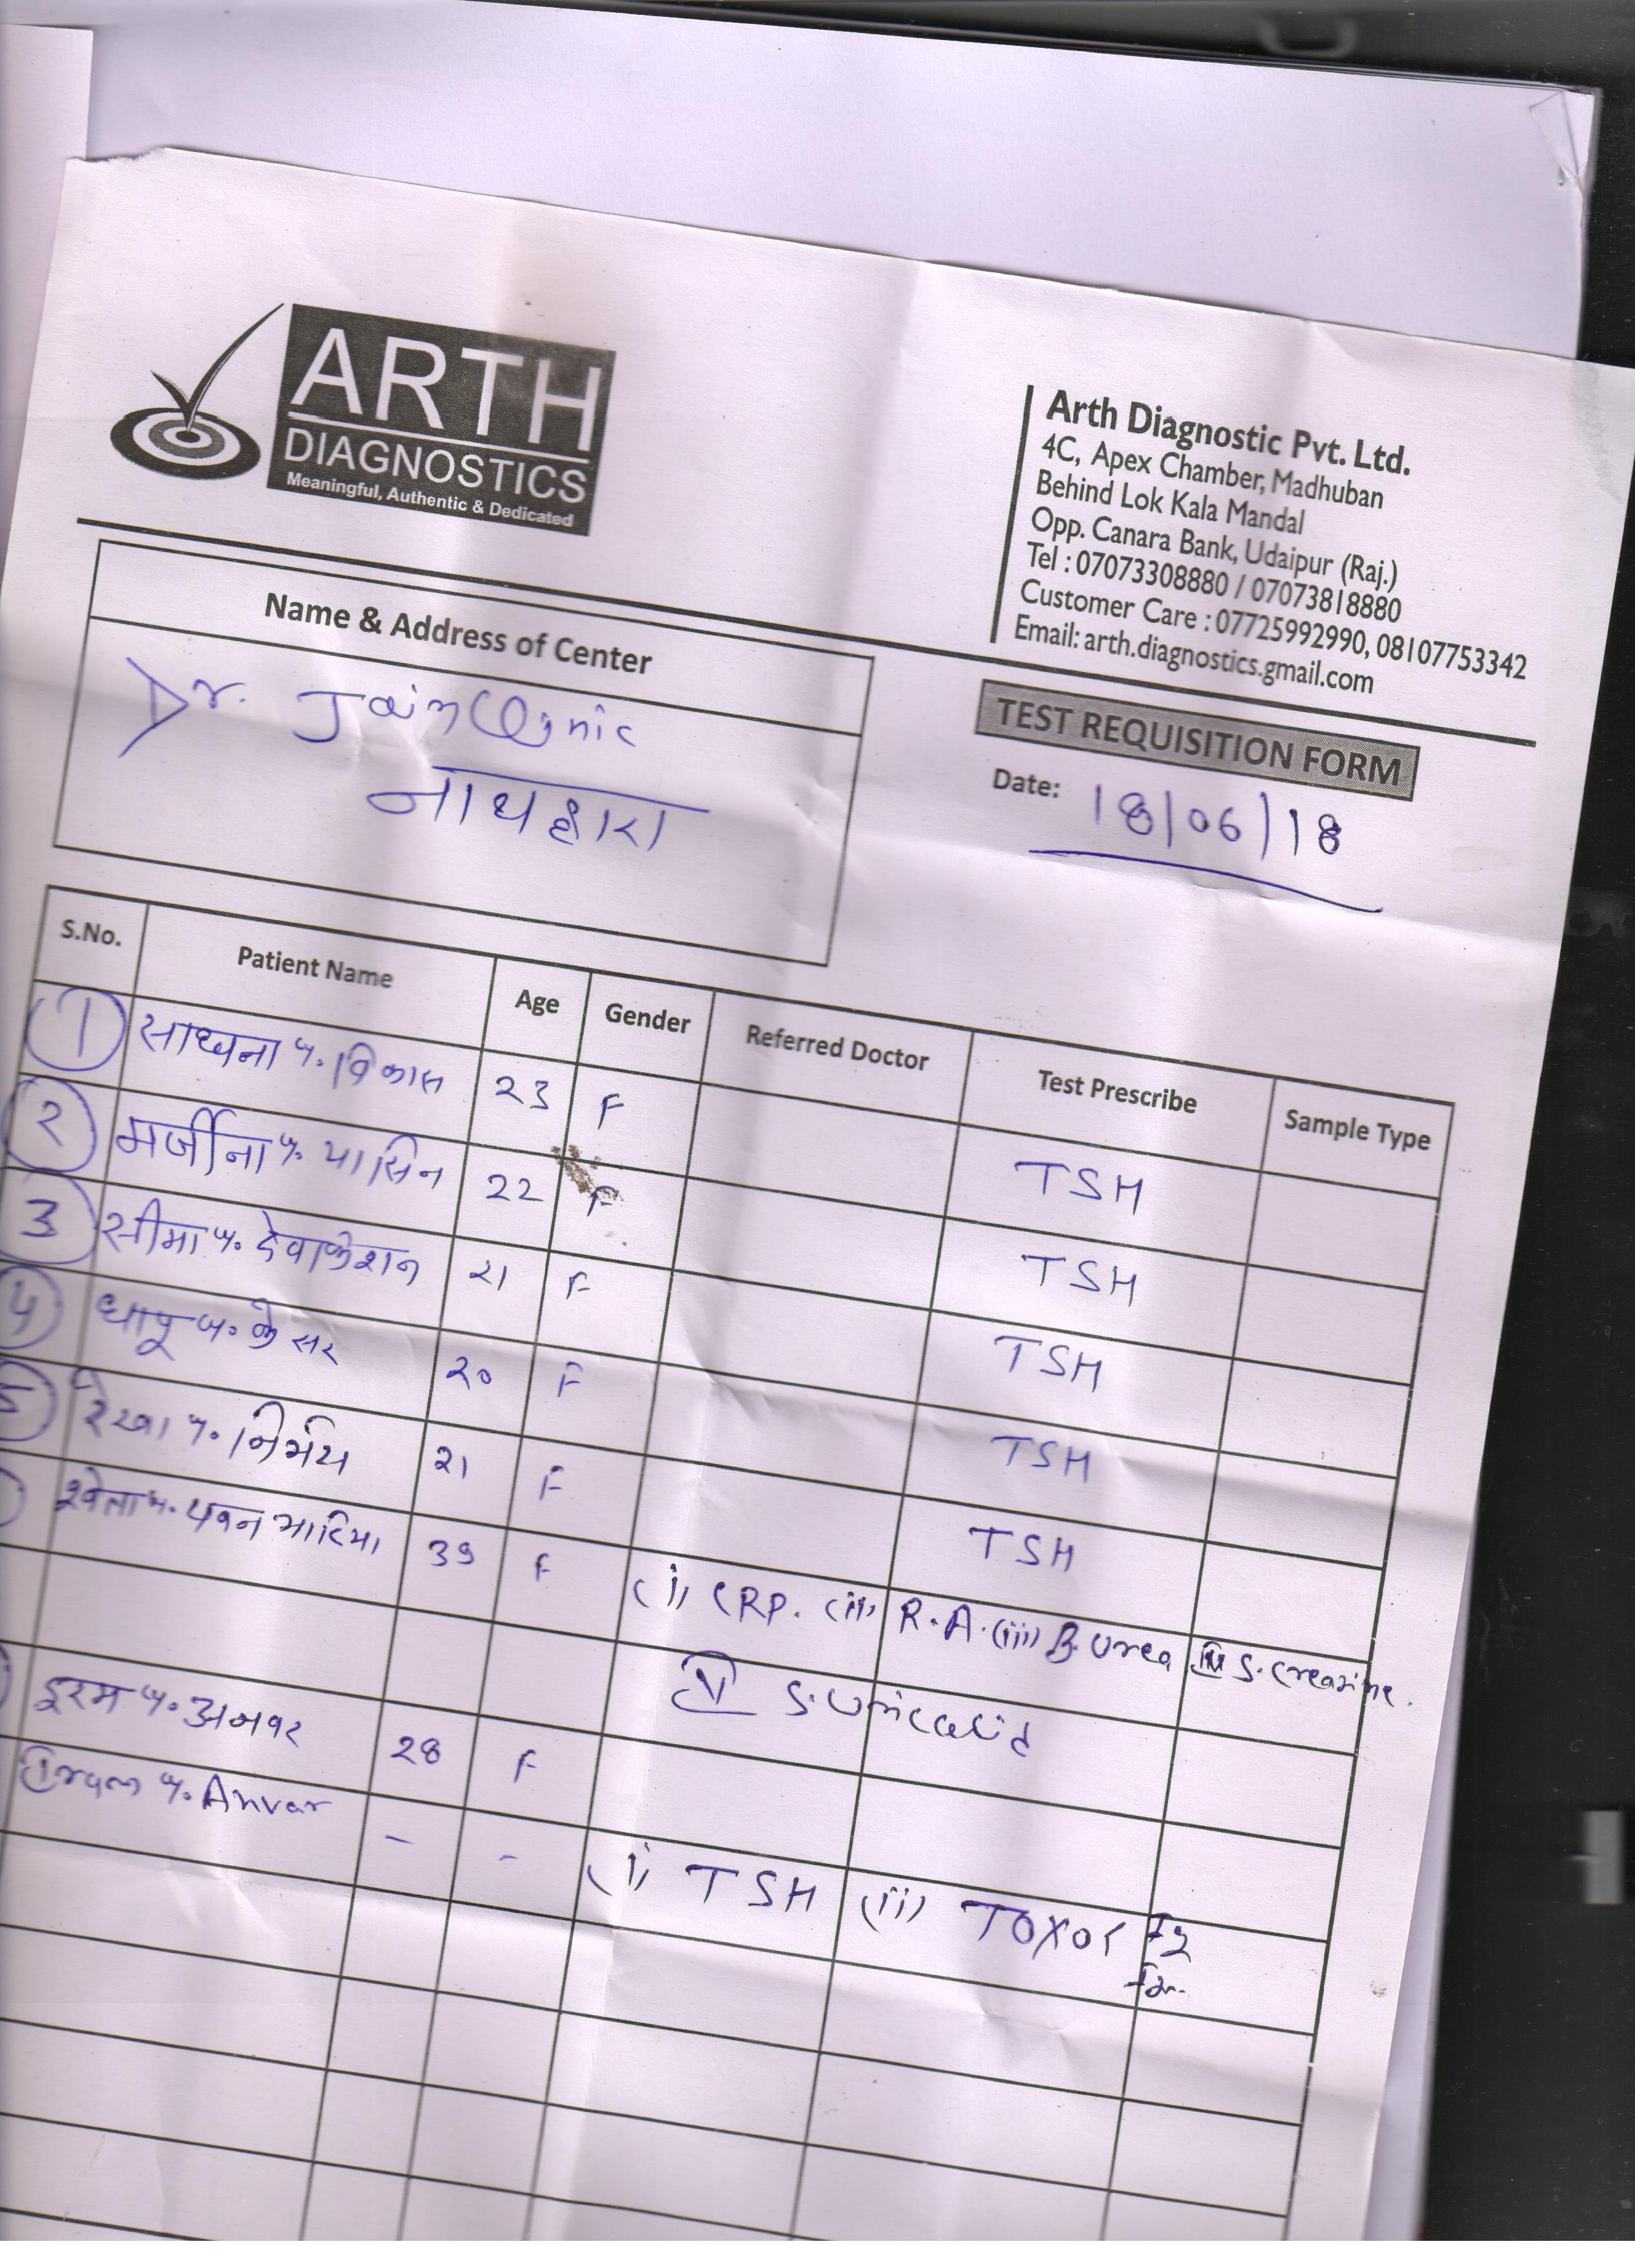 ARTH
DIAGNOSTICS
Meaningful, Authentic & Dedicated
Arth Diagnostic Pvt. Ltd.
4C, Apex Chamber, Madhuban
Behind Lok Kala Mandal
Opp. Canara Bank, Udaipur (Raj.)
Tel : 07073308880 / 07073818880
Customer Care : 07725992990, 08107753342
Email: arth.diagnostics.gmail.com
Name & Address of Center
Dr. Jain Clinic
नाथद्वारा
TEST REQUISITION FORM
Date: 18/06/18
S.No. Patient Name Age Gender Referred Doctor Test Prescribe Sample Type
1 साधना प. विकास 23 F TSH
2 मर्जीना प. यासिन 22 F TSH
3 सीमा प. 21 F TSH
4 धापू प. केसर 20 F TSH
5 रेखा प. निर्भय 21 F TSH
श्वेता प. पवन भाटिया 39 F (i) CRP. (ii) R.A. (iii) B. Urea (iv) S.
(V) S. Uric acid
इरम प. अनवर 28 F
प. Anvar - - (i) TSH (ii) TOXO Ig